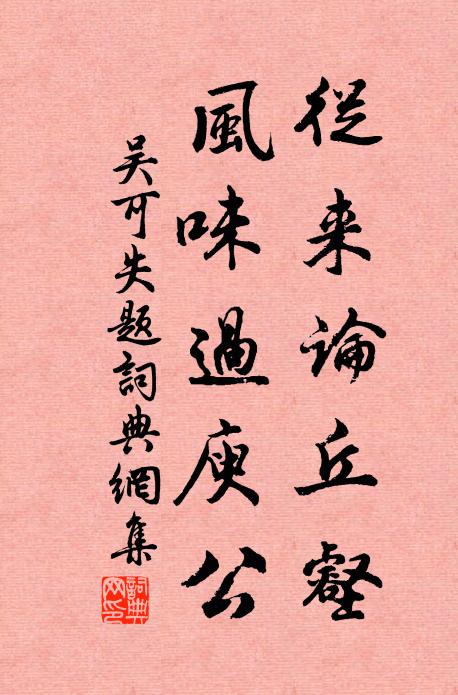 從来論丘壑
風味過庾公
吴可失题詞典網集
詞典网印